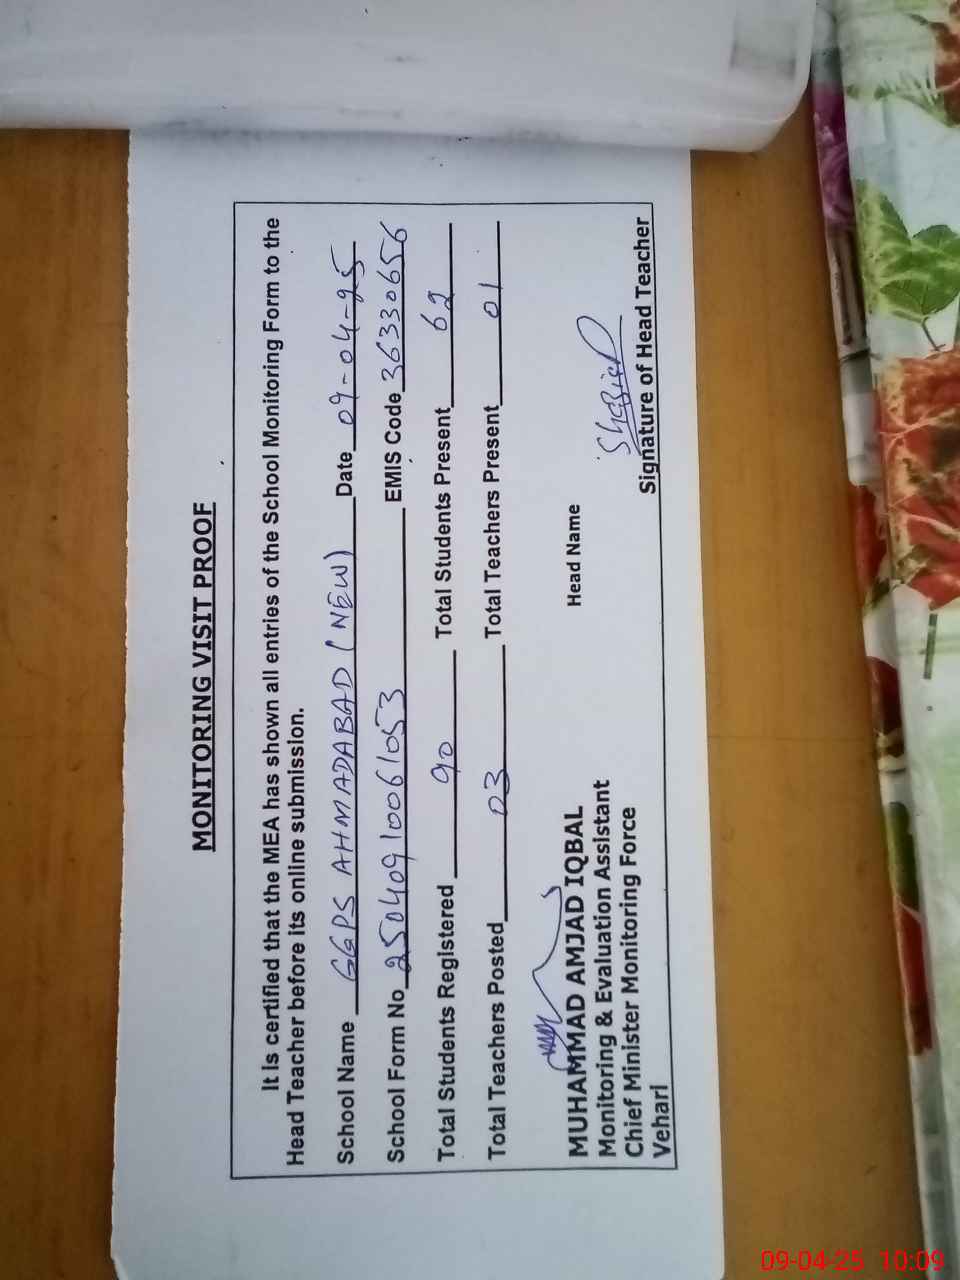 MONITORING VISIT PROOF
It Is certified that the MEA has shown all entries of the School Monitoring Form to the
Head Teacher before its online submission.
School Name GGPS AHMADABAD (NEW) Date 09-04-25
School Form No 25040910061053 EMIS Code 36330656
Total Students Registered 90 Total Students Present 62
Total Teachers Posted 03 Total Teachers Present 01
MUHAMMAD AMJAD IQBAL Head Name
Monitoring & Evaluation Assistant
Chief Minister Monitoring Force
Signature of Head Teacher
VeharI
09-04-25 10:09